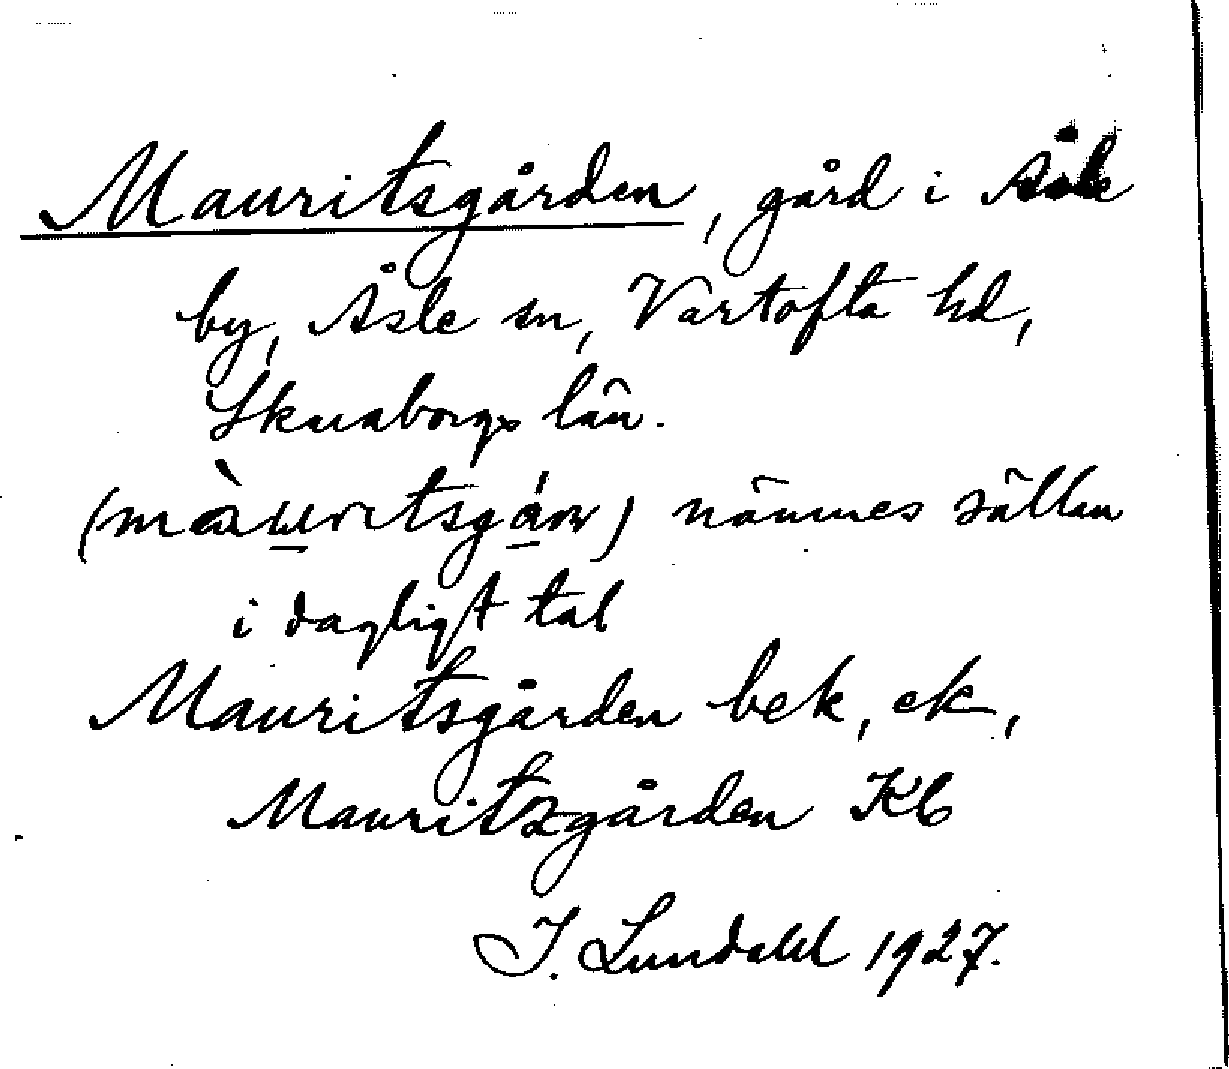 Mauritsgården, gård i Åsle
by, Åsle sn, Vartofta hd,
Skaraborgs län.
nämnes sällan
i dagligt tal
Mauritsgården bek, ek,
Mauritzgården Kb
I. Lundahl 1927.